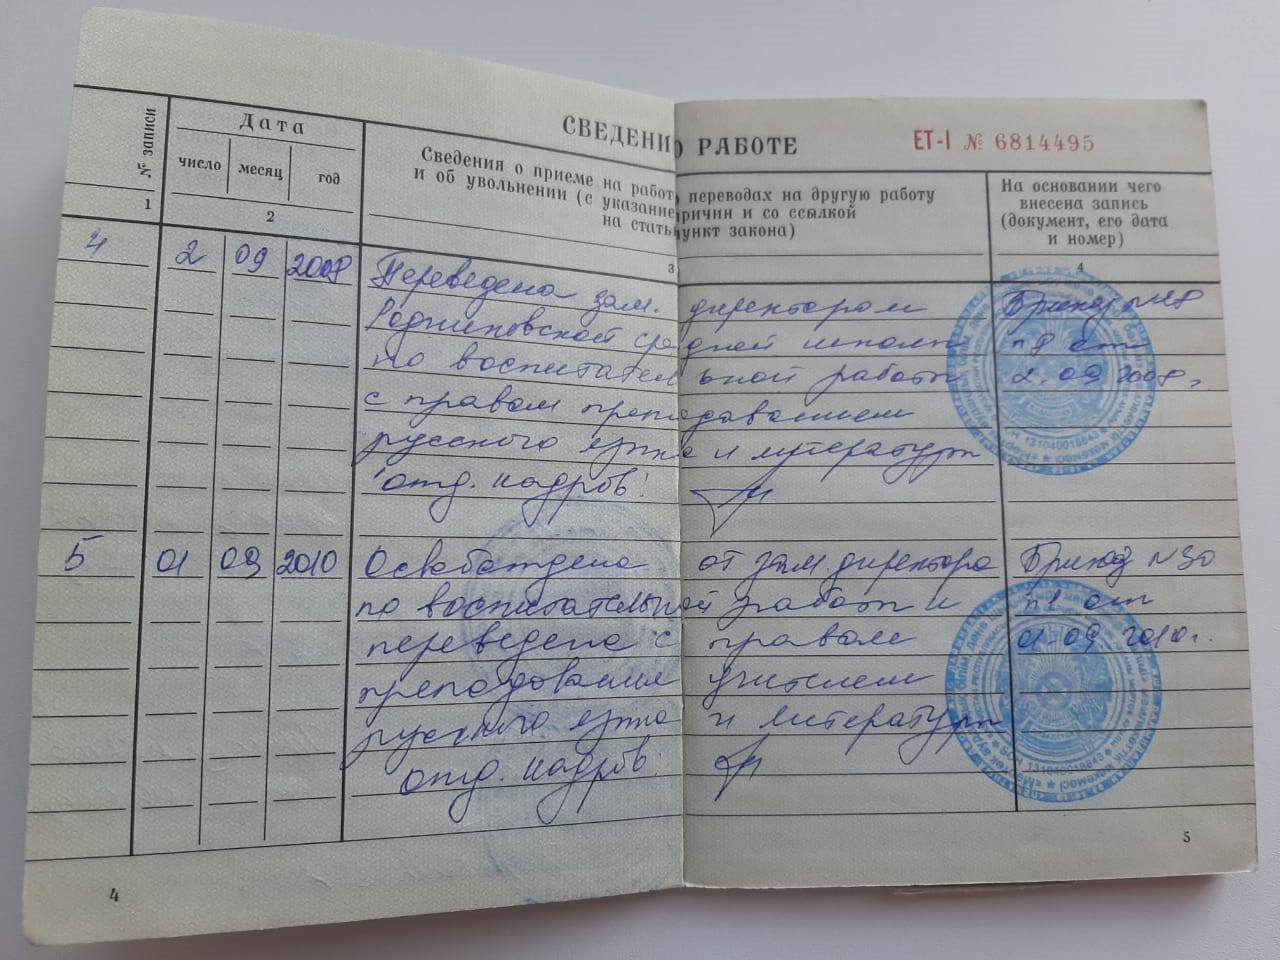 СВЕДЕНИ О РАБОТЕ
ЕТ-I № 6814495
№ записи
Дата
число месяц год
Сведения о приеме на работ о переводах на другую работу
и об увольнении (с указание ричин и со ссылкой
на стать ункт закона)
На основании чего
внесена запись
(документ, его дата
и номер)
1 2 3 4
4 2 09 2008 Переведена зам. директором Приказ №48
Родниковской средней школы п8 от
по воспитательной работы 2.09 2008г.
с правом преподаванием
русского языка и литературы
отд. кадров:
5 01 09 2010 Освобождена от зам. директора Приказ №30
по воспитательной работы и п1 от
переведена с правом 01.09 2010г.
преподавания учителем
русского языка и литературы
отд. кадров:
131040019843
4
5